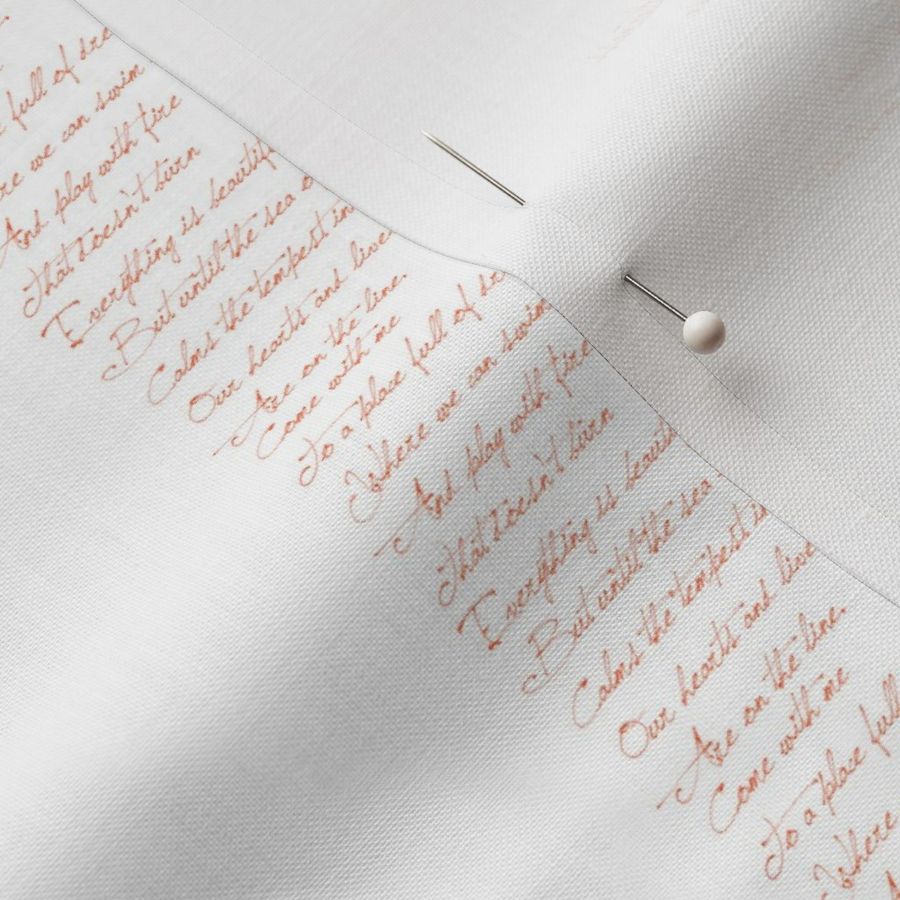 full of dre
re we can swim
And play with fire
That doesn't burn
Everything is beautif
But until the sea
Calms the tempest in
Our hearts and live
Are on the line.
Come with me
To a place full of dre
Where we can swim
And play with fire
That doesn't burn
Everything is beauti
But until the sea
Calms the tempest in
Our hearts and live
Are on the line.
Come with me
To a place full
Where